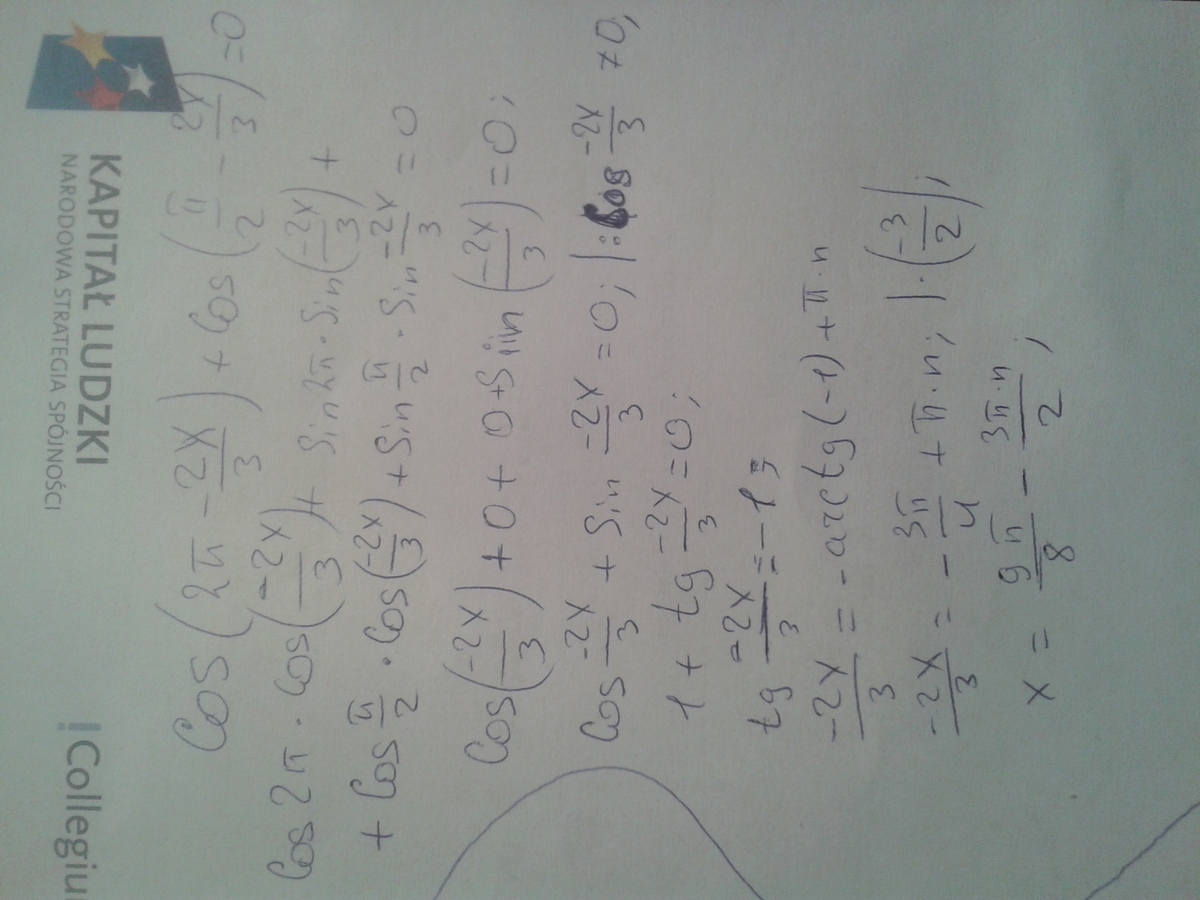 KAPITAŁ LUDZKI
NARODOWA STRATEGIA SPÓJNOŚCI
Collegiu
cos(2π - 2x/3) + cos(π/2 - 2x/3) = 0
cos 2π · cos(-2x/3) + sin 2π · sin(-2x/3) +
+ cos π/2 · cos(-2x/3) + sin π/2 · sin -2x/3 = 0
cos(-2x/3) + 0 + 0 + sin(-2x/3) = 0;
cos -2x/3 + sin -2x/3 = 0; |: cos -2x/3 ≠ 0;
1 + tg -2x/3 = 0;
tg -2x/3 = -1;
-2x/3 = - arctg(-1) + π·n
-2x/3 = - 3π/4 + π·n; | · (-3/2);
x = 9π/8 - 3π·n/2;